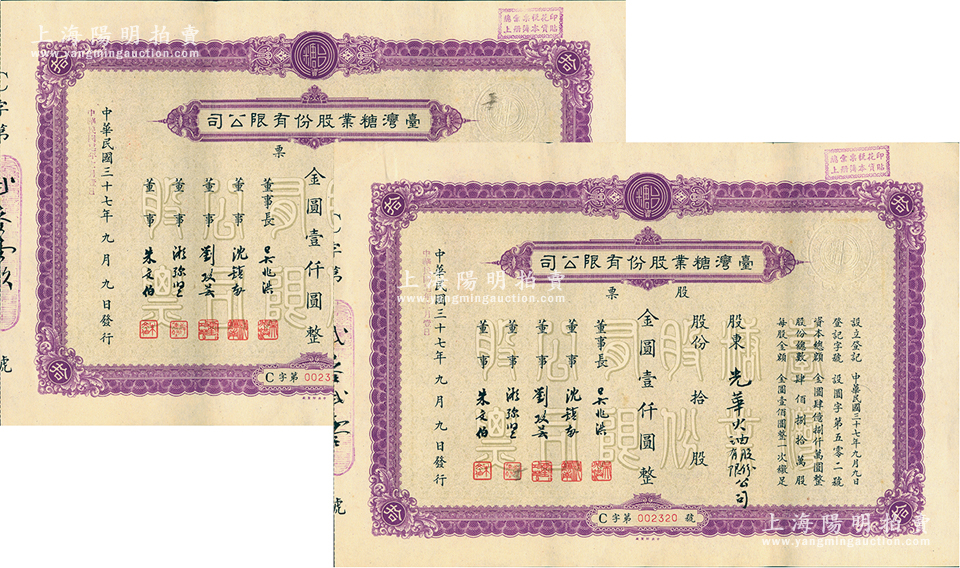 上海陽明拍賣
www.yangmingauction.com
印花稅票彙總
貼實本簿冊上
拾
拾
臺灣糖業股份有限公司
票
金圓壹仟圓整
董事長 吳兆洪
董事 沈鎮南
董事
董事
董事 朱文伯
中華民國三十七年九月九日發行
C字第 0023
拾
C字第
號
印花稅票彙總
貼實本簿冊上
拾
拾
臺灣糖業股份有限公司
股票
設立登記 中華民國三十七年九月九日
登記字號 設圖字第五零二號
資本總額 金圓肆億捌仟萬圓整
股份總數 肆佰捌拾萬股
每股金額 金圓壹佰圓整一次繳足
股東 光華火油股份有限公司
股份拾股
金圓壹仟圓整
董事長 吳兆洪
董事 沈鎮南
董事
董事
董事 朱文伯
中華民國三十七年九月九日發行
C字第 002320 號
拾
拾
字第
號
上海陽明拍賣
www.yangmingauction.com
上海陽明拍賣
www.yangmingauction.com